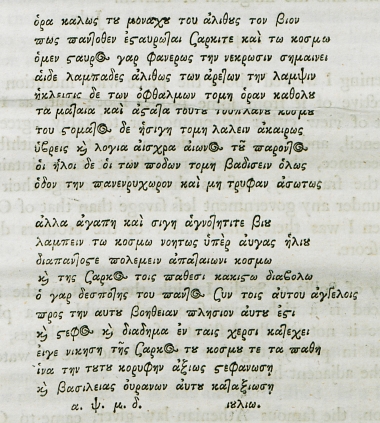 ὁρα καλως τυ μοναχυ του ἀλιθυς τον βιον
πως πανϊοθεν ἐσαυρῶϊαι ζαρκιτε καὶ τω κοσμω
ὁμεν σαυρος γαρ φανερως την νεκρωσιν σημαινει
αἱδε λαμπαδες ἀλιθως των ἀρεϊων την λαμψιν
ἡκλεισις δε των ὀφθαλμων τομη ὁραν καθολυ
τα μαϊαια καὶ ἀϊαϊα τουϊυ κοσμυ
του σομαϊος δε ἡσιγη τομη λαλειν ἀκαιρως
ὑϐρεις ϗ λογια αἰσχρα αἰωνος τȣ παροντος
οἱ ἡλοι δε οἱ των ποδων τομη βαδισειν ὁλως
ὁδον την πανευρυχωρον και μη τρυφαν ἀσωτως
ἀλλα ἀγαπη και σιγη ἁγνοϊητιτε βιυ
λαμπειν τω κοσμω νοητως ὑπὲρ ἀυγας ἡλιυ
διαπανϊοστε πολεμειν ἀπαϊαιωνι κοσμω
ϗ της ζαρκος τοις παθεσι κακισω διαϐολω
ὁ γαρ δεσποϊης του πανϊος ζυν τοις ἀυτου ἀγϊελοις
προς την αυτυ βοηθειαν πλησιον αὐτυ ἐσι
ϗ σεφος ϗ διαδημα ἐν ταις χερσι καϊεχει
ειγε νικηση τῆς ζαρκος τυ κοσμυ τε τα παθη
ἱνα την τυτυ κορυφην ἀξιως σεφανωση
ϗ βασιλειας ὀυρανων ἀυτυ καϊαξιωση
α. ψ. μ. δ. ιυλιω.